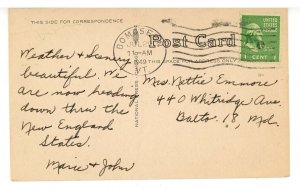 THIS SIDE FOR CORRESPONDENCE
Post Card
THIS SPACE FOR ADDRESS ONLY
BOMOSEEN
JUL
11 AM
1949
VT.
1 CENT
Weather & Scenery
beautiful. We
are now heading
down thru the
New England
States.
Marie & John
Mrs. Nettie Emmore
440 Whitridge Ave
Balto. 18, Md.